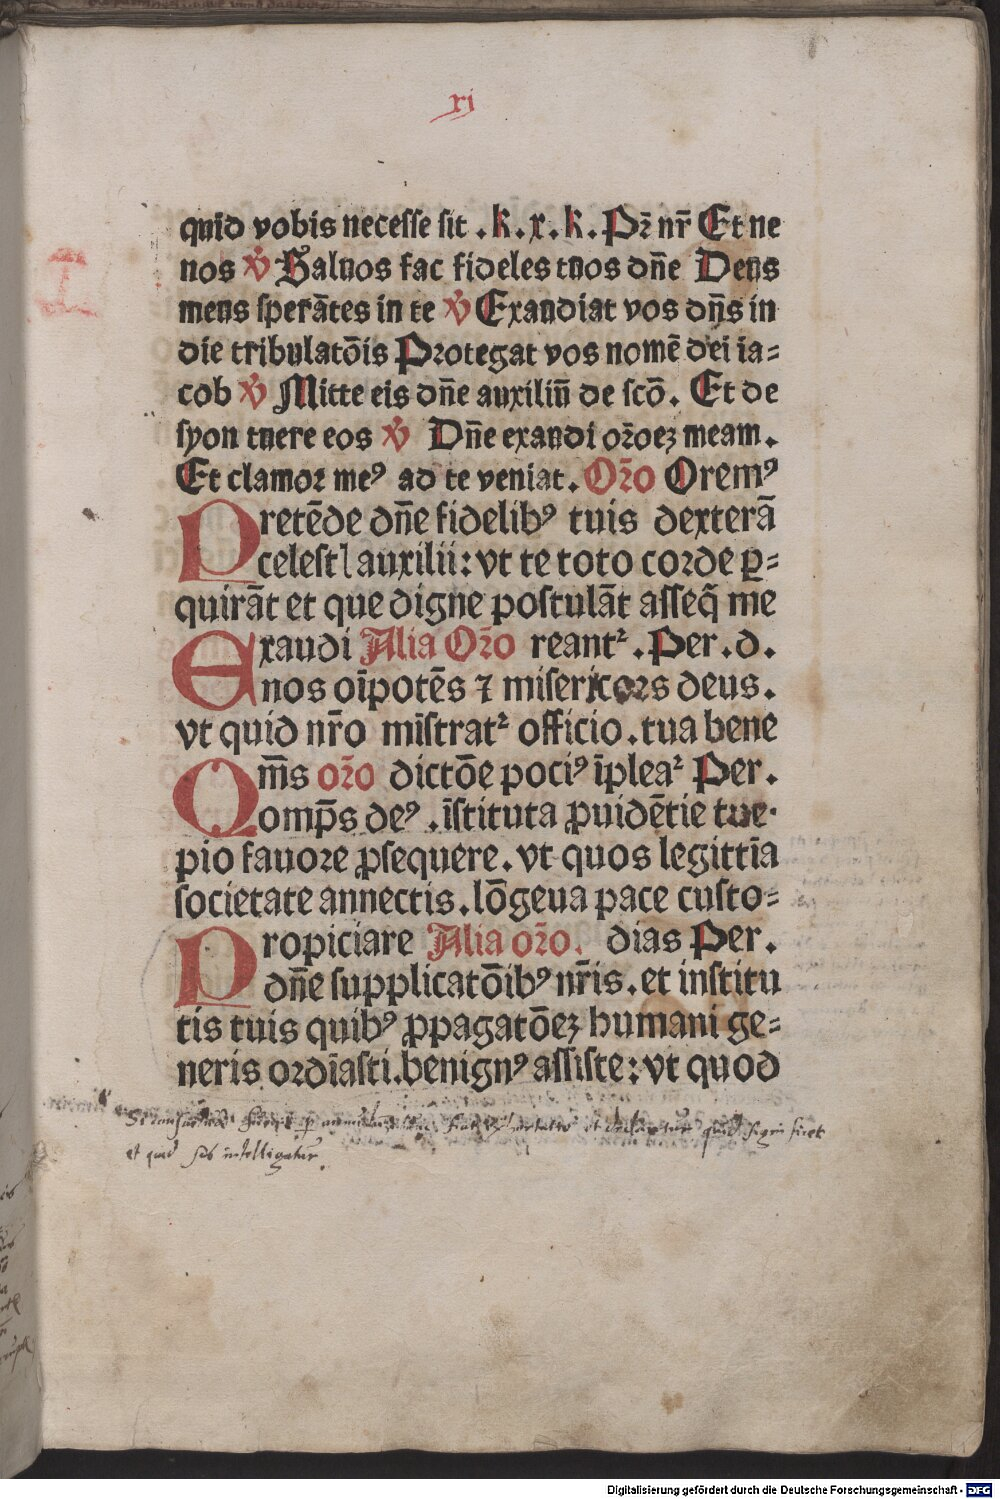 xj
quid vobis necesse sit . k . x . k . Pr̄ nr̄ Et ne
nos ℣ Saluos fac fideles tuos dn̄e Deus
meus sperātes in te ℣ Exaudiat vos dn̄s in
die tribulatōis Protegat vos nomē dei ia⸗
cob ℣ Mitte eis dn̄e auxiliū de scō . Et de
syon tuere eos ℣ Dn̄e exaudi or̄oeꝫ meam .
Et clamor meꝰ ad te veniat . Or̄o Oremꝰ
Pretēde dn̄e fidelibꝰ tuis dexterā
celestꝭ auxilii : vt te toto corde ꝑ⸗
quirāt et que digne postulāt asseq̄ me
Exaudi Alia Or̄o reantᷣ . Per . d .
nos oīpotēs ⁊ misericors deus .
vt quid nr̄o mīstratᷣ officio . tua bene
Qm̄s or̄o dictōe pociꝰ īpleaᷣ Per .
omp̄s deꝰ . īstituta ꝓuidētie tue .
pio fauore ꝓsequere . vt quos legittīa
societate annectis . lōgeua pace custo⸗
Propiciare Alia or̄o . dias Per .
dn̄e supplicatōibꝰ nr̄is . et institu
tis tuis quibꝰ ꝓpagatōeꝫ humani ge⸗
neris ordīasti . benignꝰ assiste : vt quod
et quid intelligatur
Digitalisierung gefördert durch die Deutsche Forschungsgemeinschaft - DFG